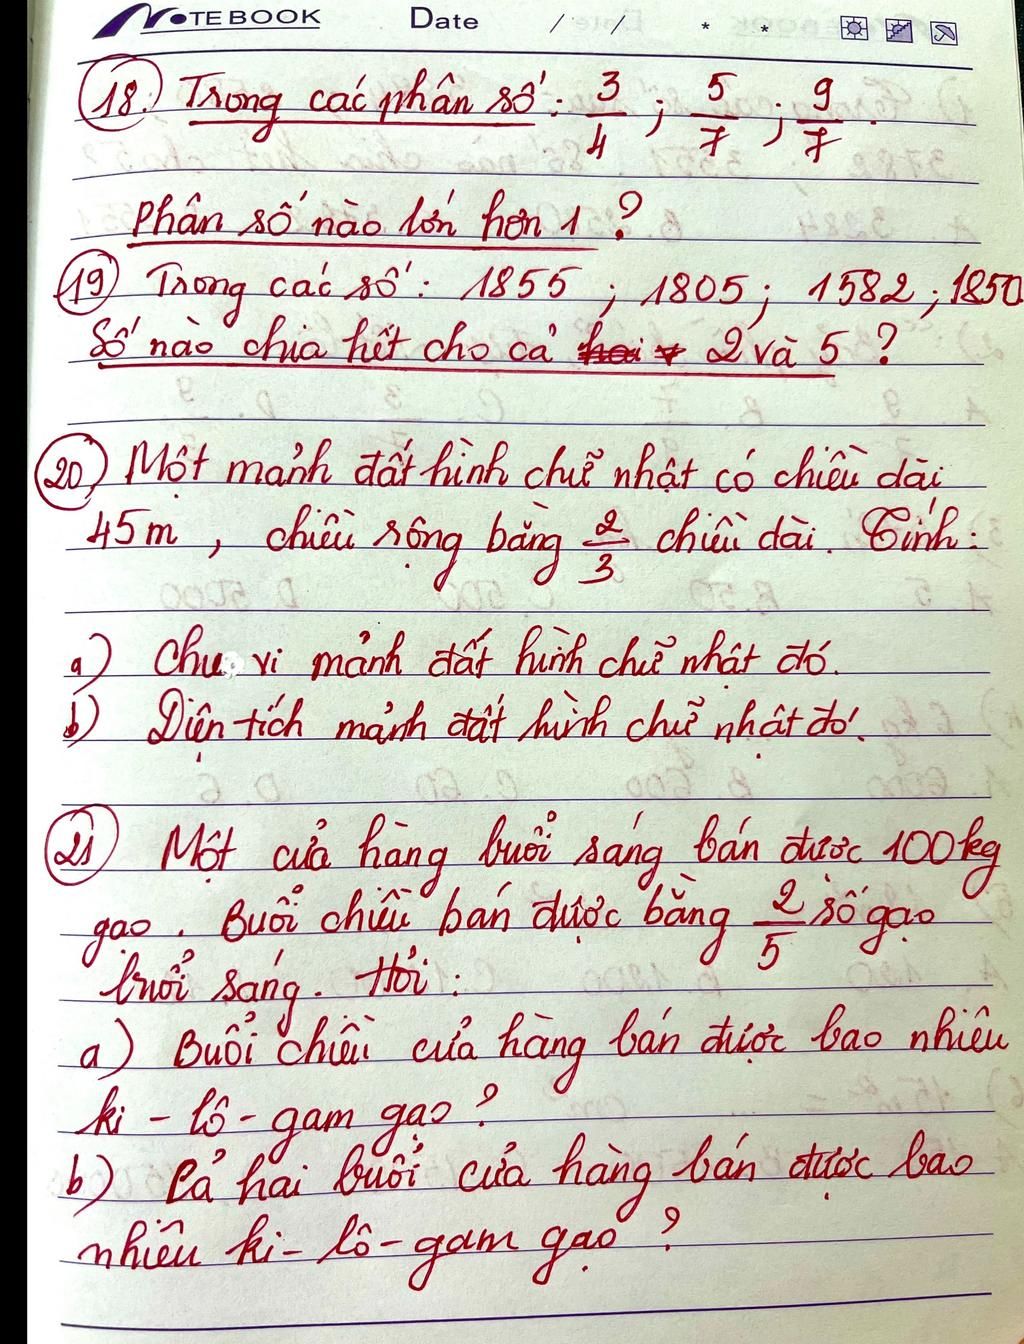 NOTEBOOK Date / / * *
18. Trong các phân số: 3/4 ; 5/7 ; 9/7 .
Phân số nào lớn hơn 1 ?
19 Trong các số: 1855 ; 1805 ; 1582 ; 1850
Số nào chia hết cho cả hai v 2 và 5 ?
20) Một mảnh đất hình chữ nhật có chiều dài
45m , chiều rộng bằng 2/3 chiều dài. Tính:
a) Chu vi mảnh đất hình chữ nhật đó.
b) Diện tích mảnh đất hình chữ nhật đó.
21 Một cửa hàng buổi sáng bán được 100kg
gạo . Buổi chiều bán được bằng 2/5 số gạo
buổi sáng. Hỏi:
a) Buổi chiều cửa hàng bán được bao nhiêu
ki - lô - gam gạo ?
b) Cả hai buổi cửa hàng bán được bao
nhiêu ki - lô - gam gạo ?